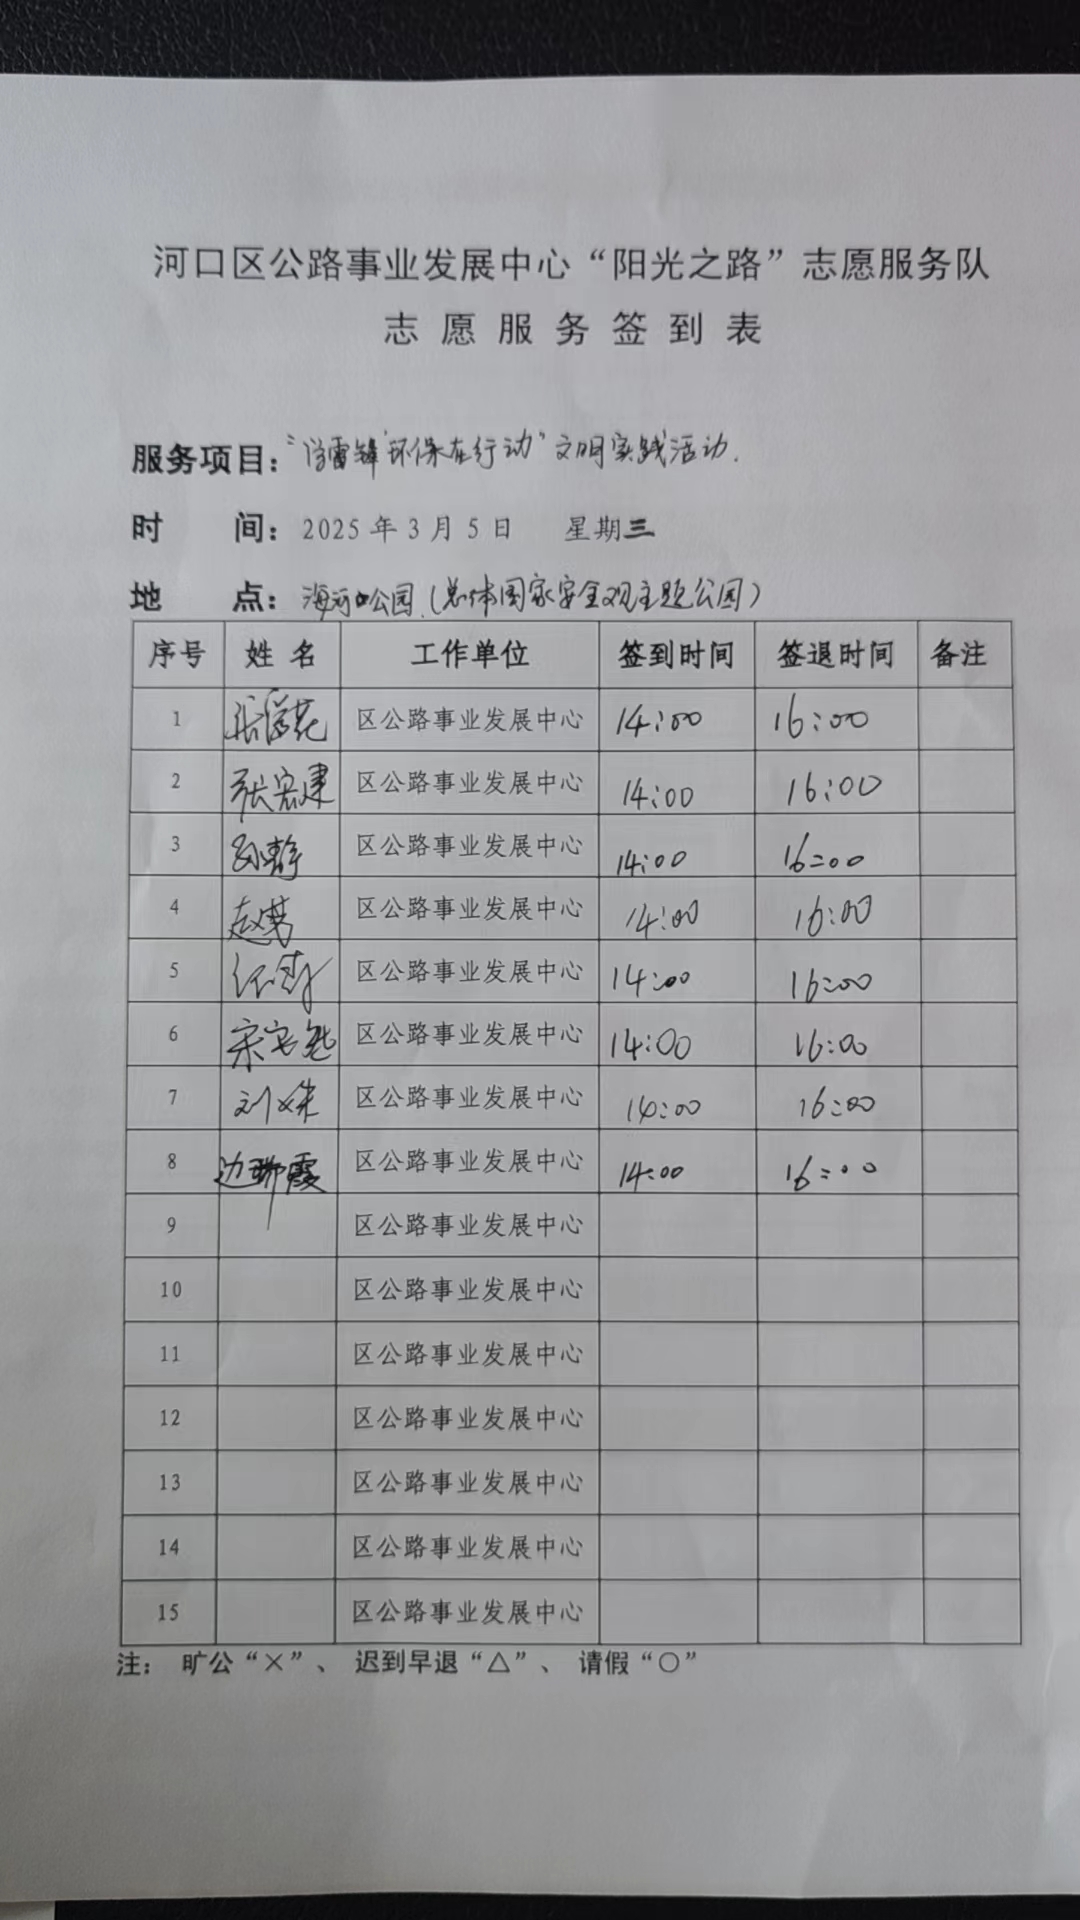 河口区公路事业发展中心“阳光之路”志愿服务队
志愿服务签到表
服务项目：“学雷锋 环保在行动”文明实践活动.
时 间：2025年3月5日 星期三
地 点：海河口公园（总体国家安全观主题公园）
序号 姓名 工作单位 签到时间 签退时间 备注
1 区公路事业发展中心 14:00 16:00
2 张宏建 区公路事业发展中心 14:00 16:00
3 孙静 区公路事业发展中心 14:00 16:00
4 区公路事业发展中心 14:00 16:00
5 区公路事业发展中心 14:00 16:00
6 区公路事业发展中心 14:00 16:00
7 刘姝 区公路事业发展中心 14:00 16:00
8 边瑞霞 区公路事业发展中心 14:00 16:00
9 区公路事业发展中心
10 区公路事业发展中心
11 区公路事业发展中心
12 区公路事业发展中心
13 区公路事业发展中心
14 区公路事业发展中心
15 区公路事业发展中心
注： 旷公“×”、 迟到早退“△”、 请假“○”